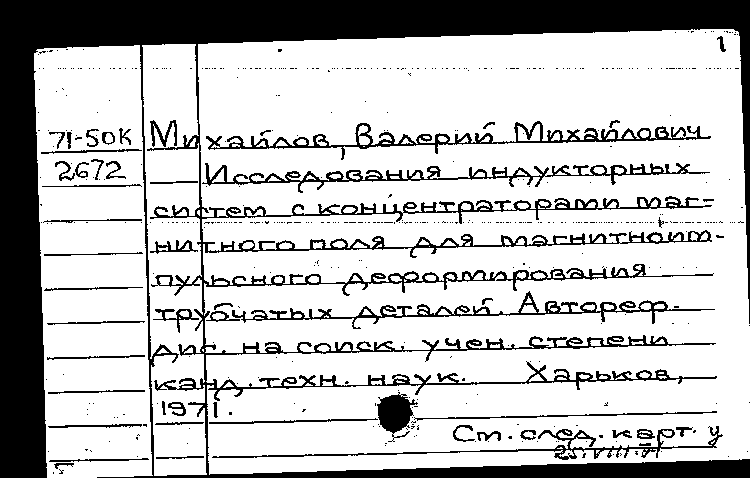 1
71-50К Михайлов, Валерий Михайлович
2672 Исследования индукторных
систем с концентраторами маг=
нитного поля для магнитноим-
пульсного деформирования
трубчатых деталей. Автореф.
дис. на соиск. учен. степени
канд. техн. наук. Харьков,
1971.
См. след. карт. у